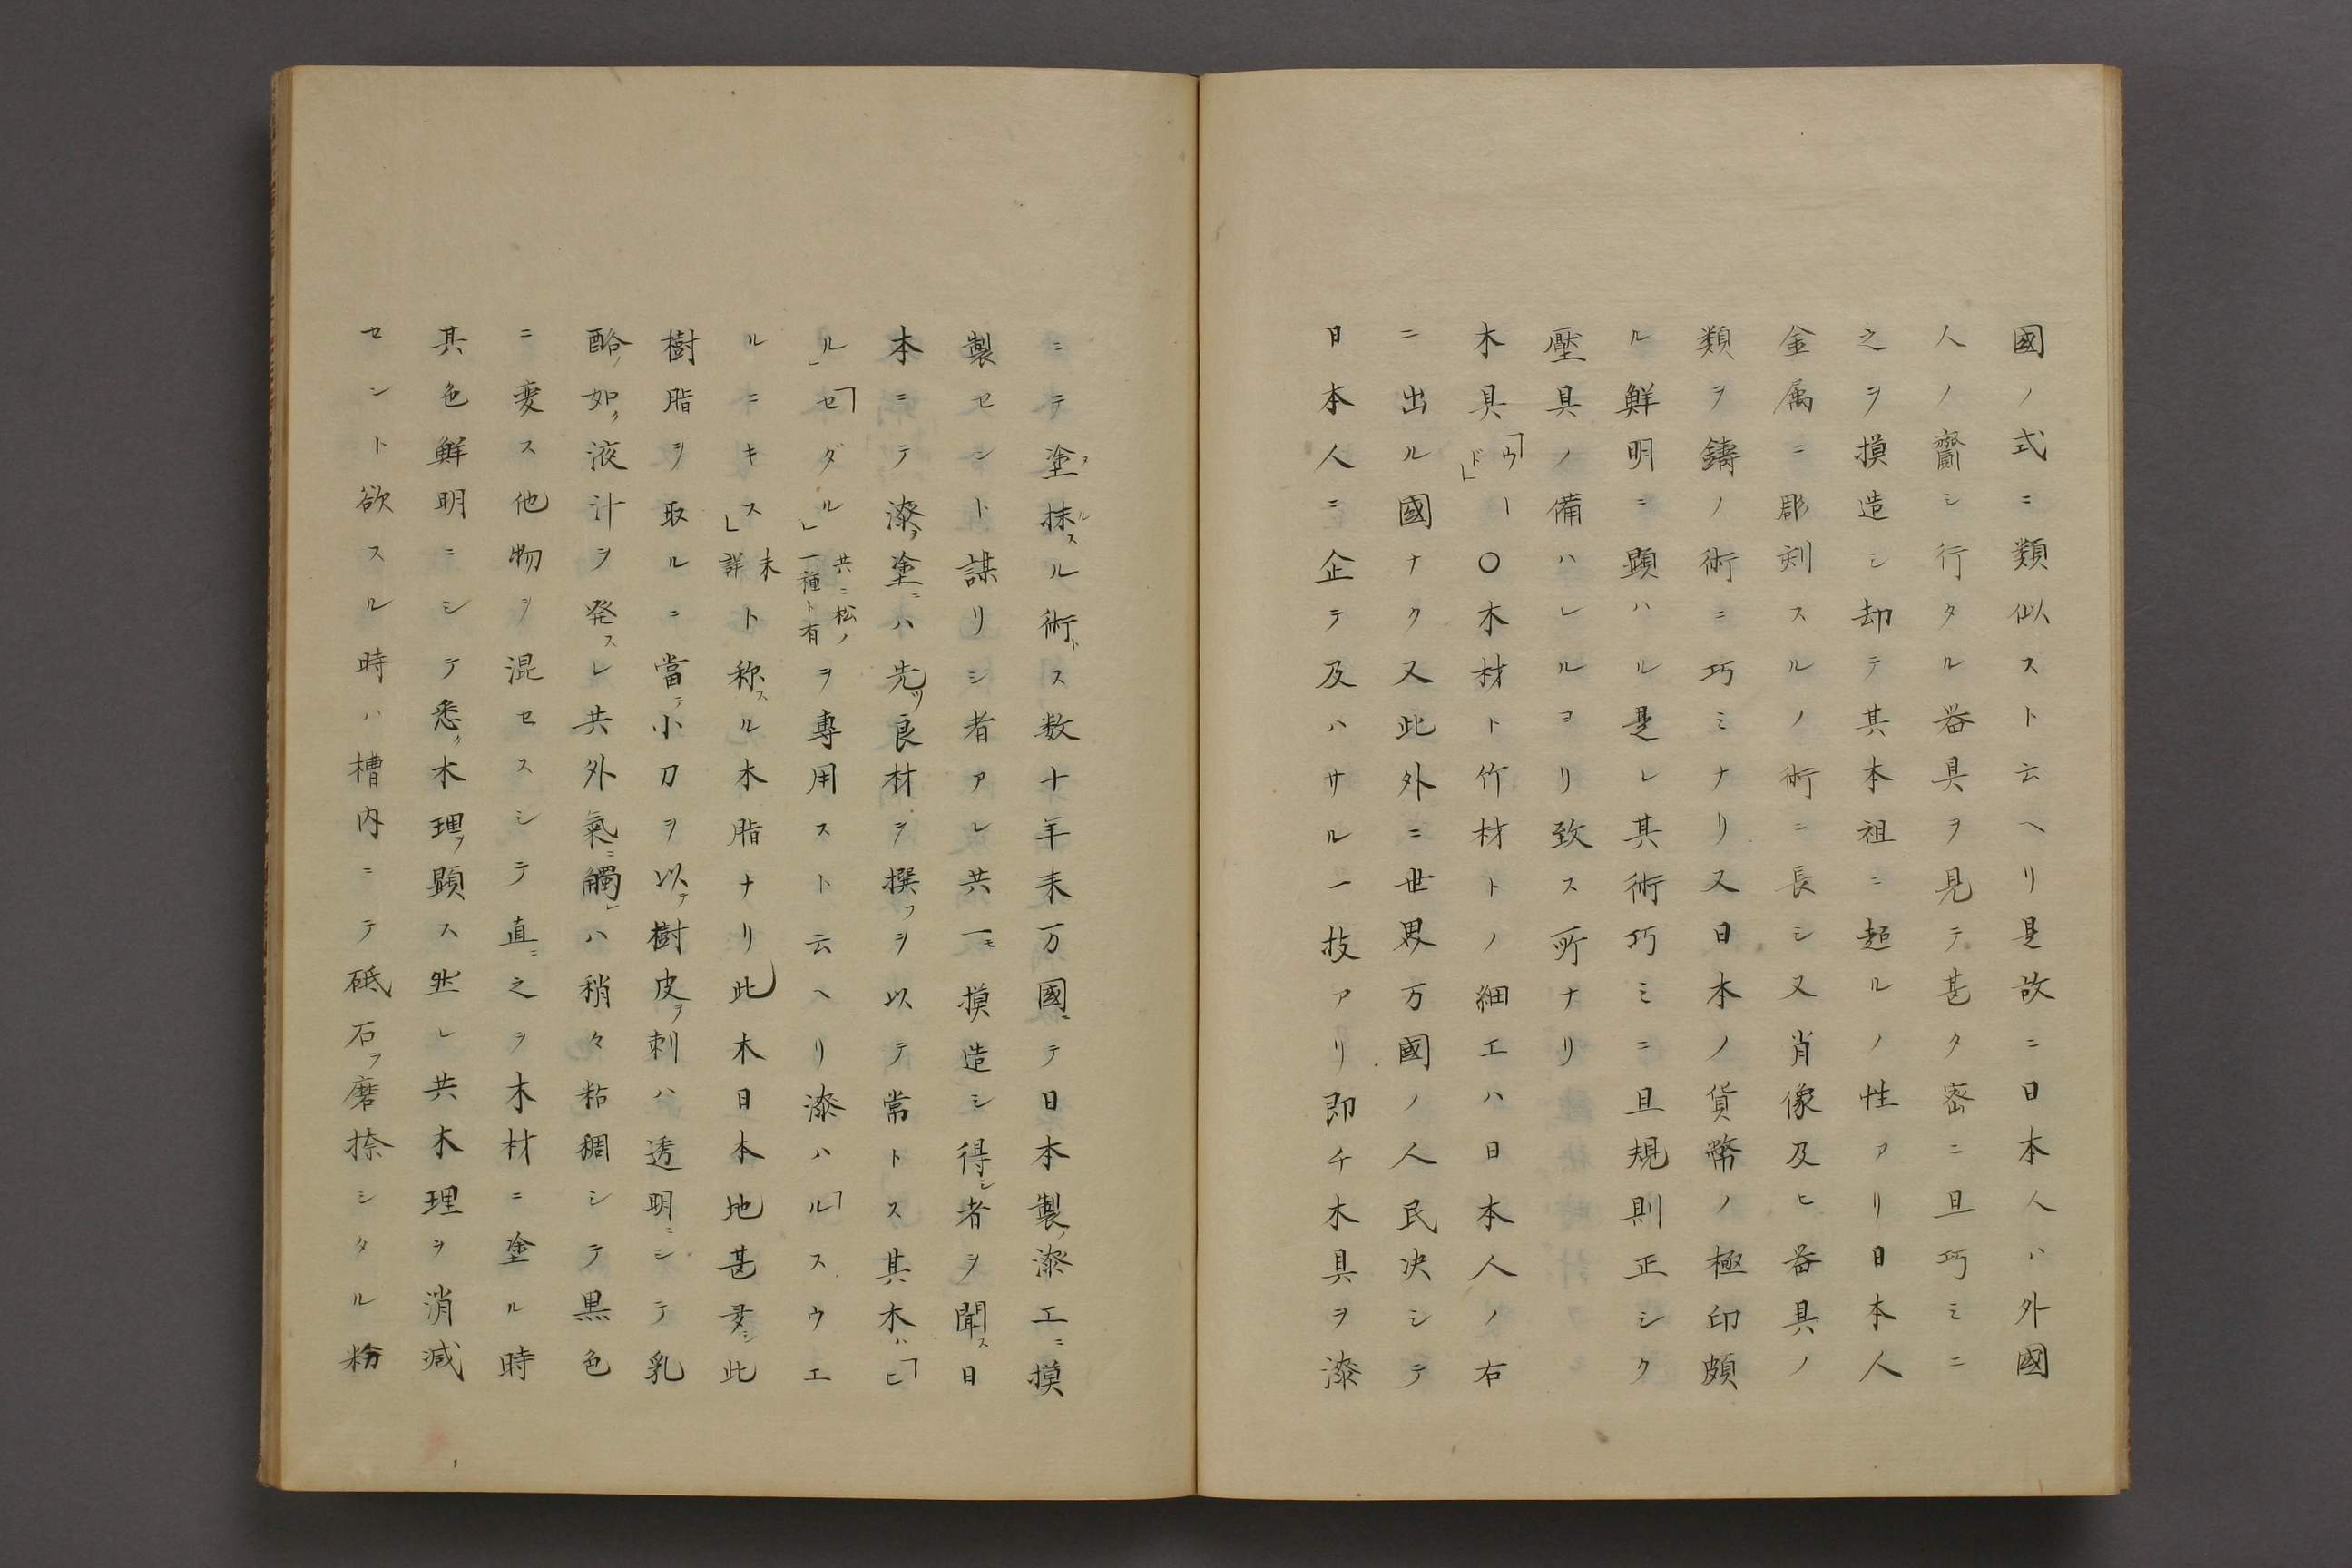 國ノ式ニ類似スト云ヘリ是故ニ日本人ハ外國
人ノ齎シ行タル器具ヲ見テ甚タ密ニ且巧ミニ
之ヲ摸造シ却テ其本祖ニ超ルノ性アリ日本人
金属ニ彫刻スルノ術ニ長シ又肖像及ヒ器具ノ
類ヲ鑄ノ術ニ巧ミナリ又日本ノ貨幣ノ極印頗
ル鮮明ニ顕ハル是レ其術巧ミニ且規則正シク
壓具ノ備ハレルヨリ致ス所ナリ
木具「ウード」〇木材ト竹材トノ細工ハ日本人ノ右
ニ出ル國ナク又此外ニ世界万國ノ人民决シテ
日本人ニ企テ及ハサル一技アリ即チ木具ヲ漆
ニテ塗抹スル術トス数十年来万國ニテ日本製ノ漆工ニ摸
製セント謀リシ者アレ共一モ摸造シ得シ者ヲ聞ス日
本ニテ漆ヲ塗ニハ先ツ良材ヲ撰フヲ以テ常トス其木ハ「ヒ
ル」「セダル」共ニ松ノ一種ト有ヲ專用スト云ヘリ漆ハ「ルスウエ
ルニキス」未詳ト称スル木脂ナリ此木日本地甚多シ此
樹脂ヲ取ルニ當テ小刀ヲ以テ樹皮ヲ刺ハ透明ニシテ乳
酪ノ如ク液汁ヲ発スレ共外氣ニ觸レハ稍々粘稠シテ黒色
ニ変ス他物ヲ混セスシテ直ニ之ヲ木材ニ塗ル時
其色鮮明ニシテ悉ク木理ヲ顕ス然レ共木理ヲ消滅
セント欲スル時ハ槽内ニテ砥石ヲ磨捺シタル粉